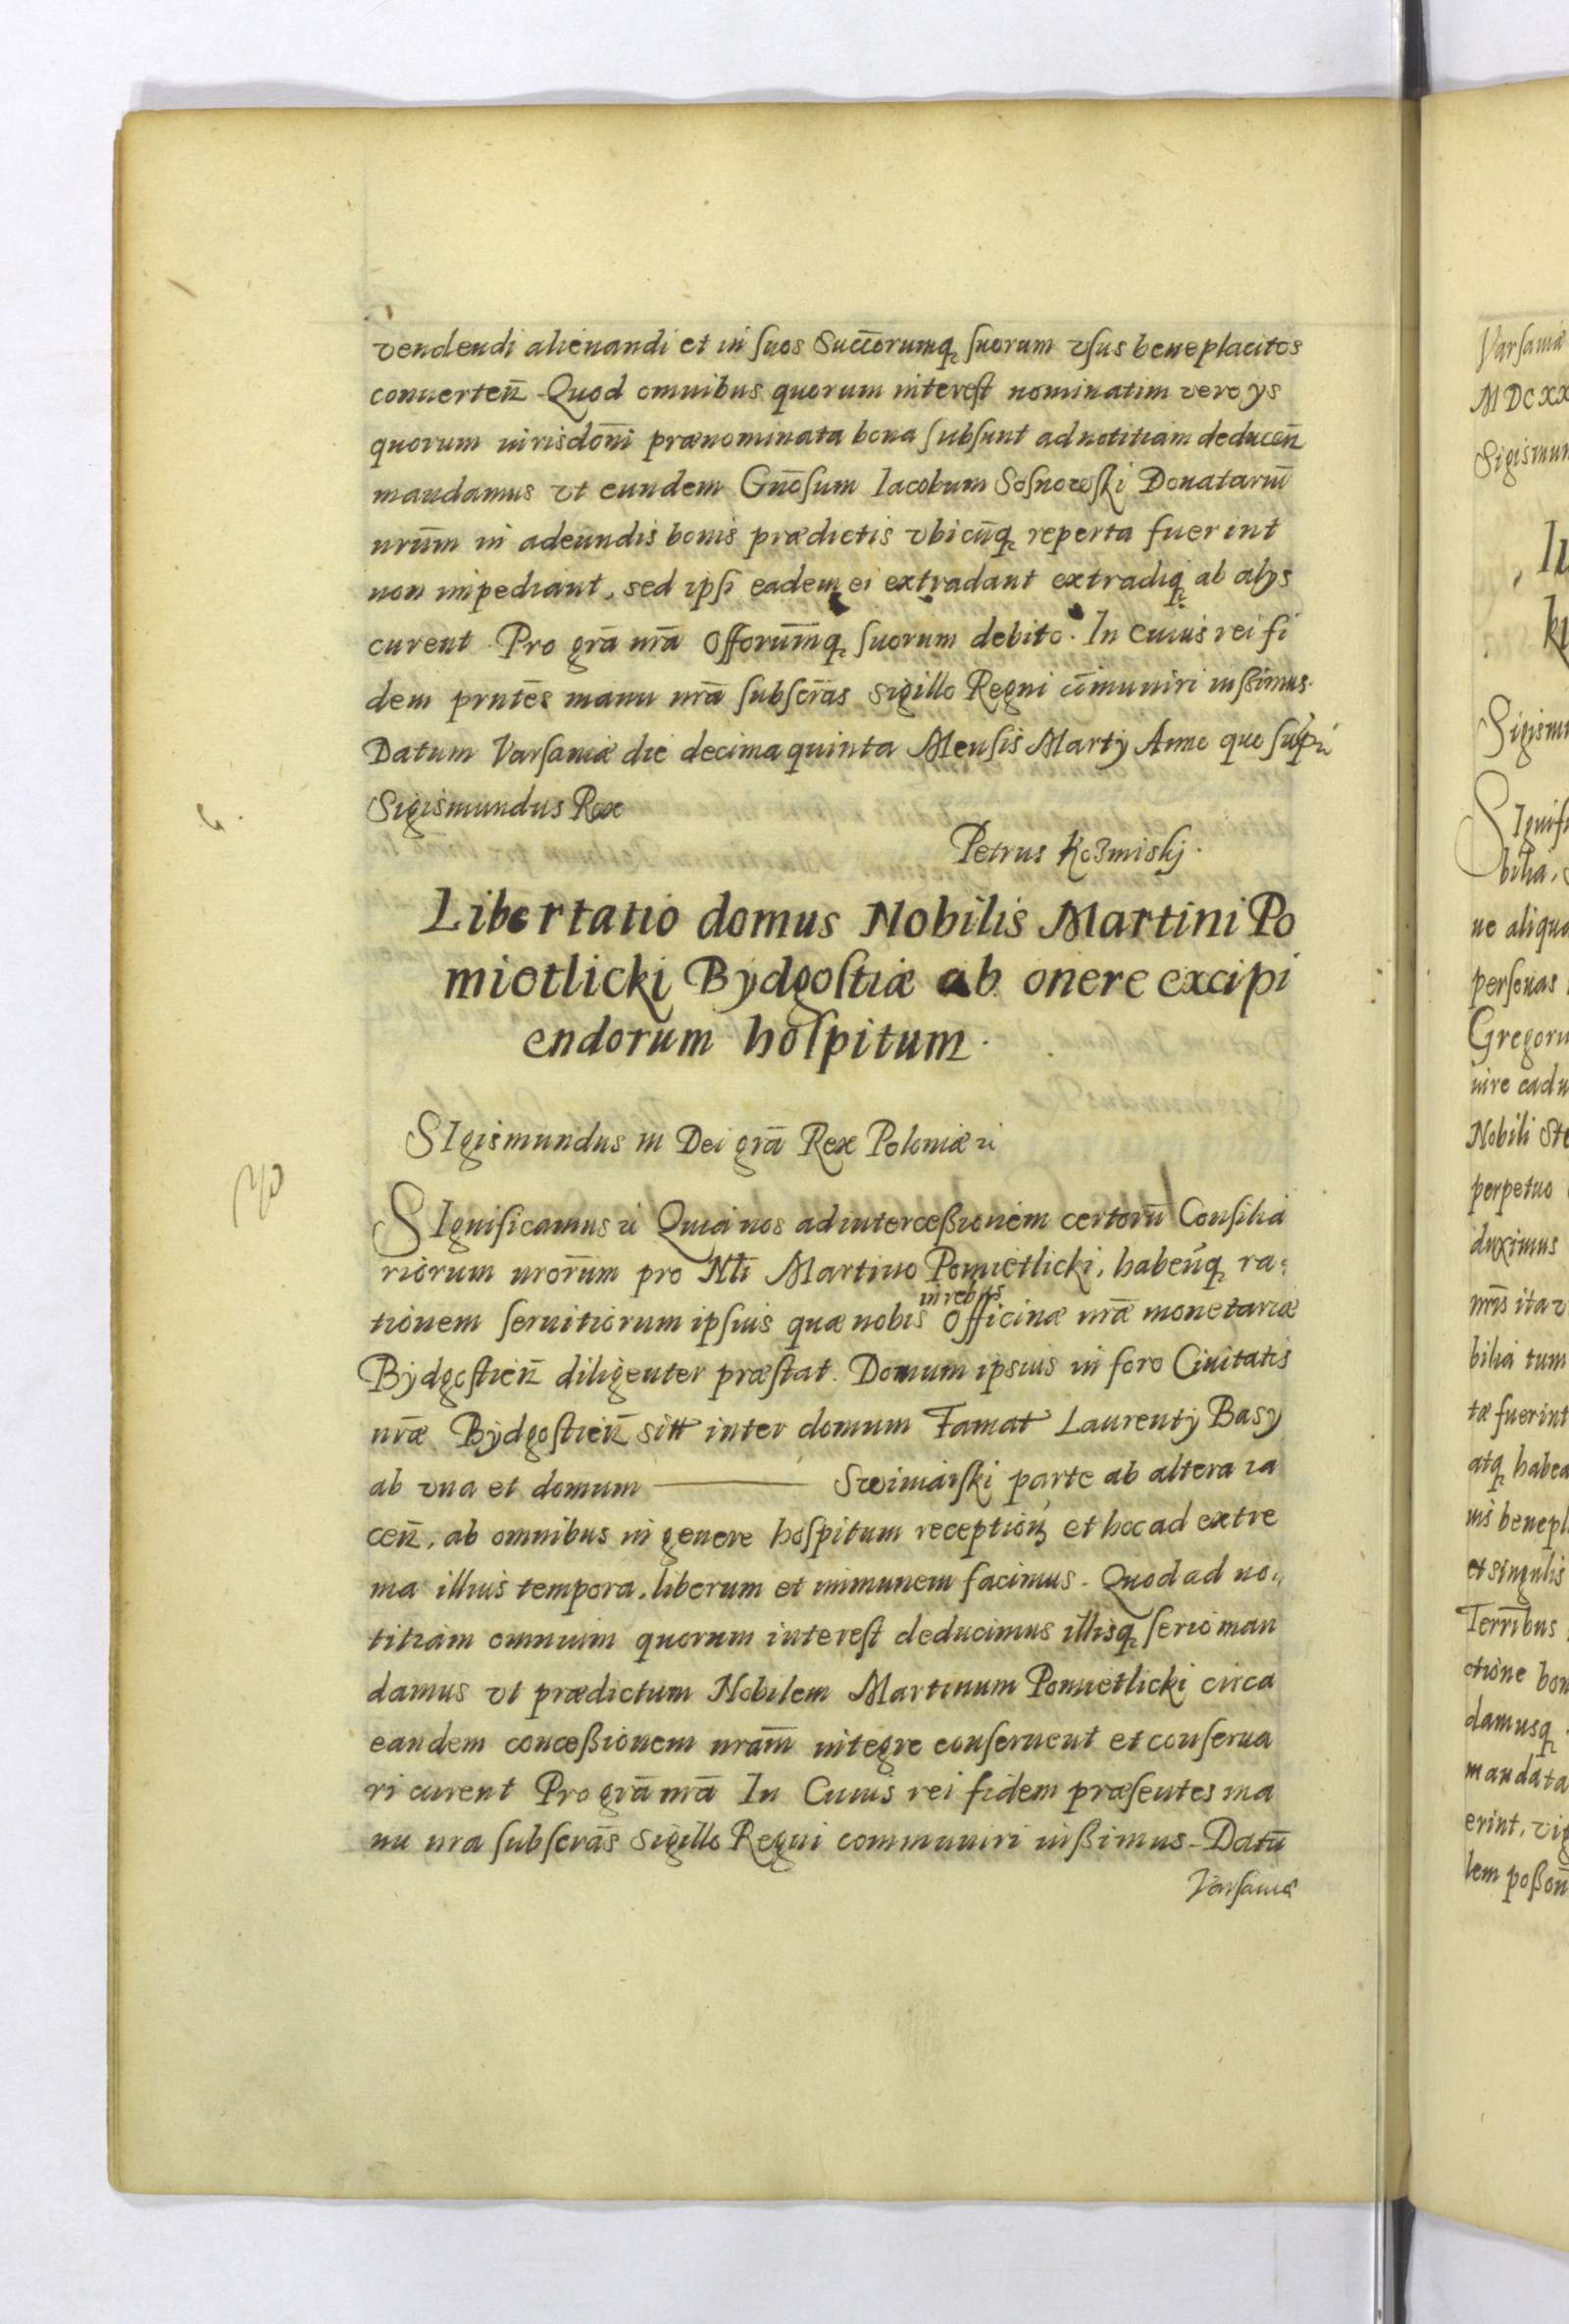 vendendi alienandi et in suos Succ̄orumq̨ suorum vsus beneplacitos
conuerten̄. Quod omnibus quorum interest nominatim vero ys
quorum iurisdōni prænominata bona subsunt ad notitiam deducen̄
mandamus vt eundem Gn̄osum Iacobum Sosnowski Donatariū
nrūm in adeundis bonis prædictis vbicūq̨ reperta fuerint
non impediant, sed ipsi eadem ei extradant extradiq̨ ab alys
curent. Pro grā nrā Offorūmq̨ suorum debito. In cuius rei fi
dem prntēs manu nrā subscrās sigillo Regni cōmuniri iussimus.
Datum Varsauiæ die decima quinta Mensis Martÿ Anno quo supr̄
Sigismundus Rex
Petrus Kozmiskj.
Libertatio domus Nobilis Martini Po
miotlicki Bÿdgostiæ ab onere excipi
endorum hospitum.
SIgismundus III Dei grā Rex Poloniæ
SIgnificamus Quia nos ad intercessionem certorū Consilia
riorum nrorūm pro Nl̄i Martino Pomietlicki, habenq̨ ra:
tionem seruitiorum ipsius quæ nobis in rebus Officinæ nrǣ monetariæ
Bÿdgostien̄ diligenter præstat. Domum ipsius in foro Ciuitatis
nrǣ Bÿdgostien̄ sitt inter domum Famat Laurentÿ Basy
ab vna et domum ——— Swiniarski parte ab altera ia
cen̄, ab omnibus in genere hospitum reception̄ et hoc ad extre
ma illius tempora, liberum et immunem facimus. Quod ad no:
titiam omnium quorum interest deducimus illisq̨ serio man
damus vt prædictum Nobilem Martinum Pomietlicki circa
eandem concessionem nrām integre conseruent et conserua
ri curent Pro grā nrā In Cuius rei fidem præsentes ma
nu nra subscrās Sigillo Regni communiri iussimus. Datū
Varsauiæ
Varsauiæ
MDCXX
Sigismun
Iu
ki
Sigismu
SIgnifi
bilia,
ue aliqua
personas
Gregoriu
iure cadu
Nobili Ste
perpetuo
duximus
nrīs ita v
bilia tum
tæ fuerint
atq̨ habea
uis benepl
et singulis
Terrībus
ctione bon
damusq̨
mandata
erint, vig
lem posson